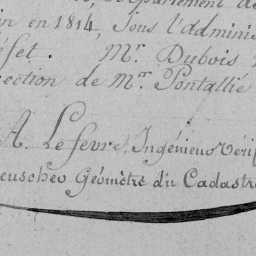 Département de
in en 1814, Sous l'adminis
éfet. Mr. Dubois
ection de Mr. Pontallié
A. Lefevre, Ingénieur Véri
euscheo Géomètre du Cadastre